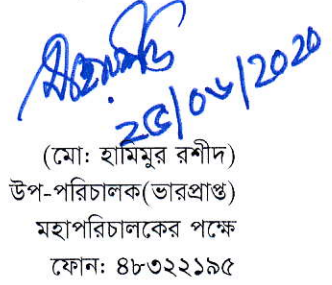 ২৫/০৬/2020
(মো: হামিমুর রশীদ)
উপ-পরিচালক(ভারপ্রাপ্ত)
মহাপরিচালকের পক্ষে
ফোন: ৪৮৩২২১৯৫